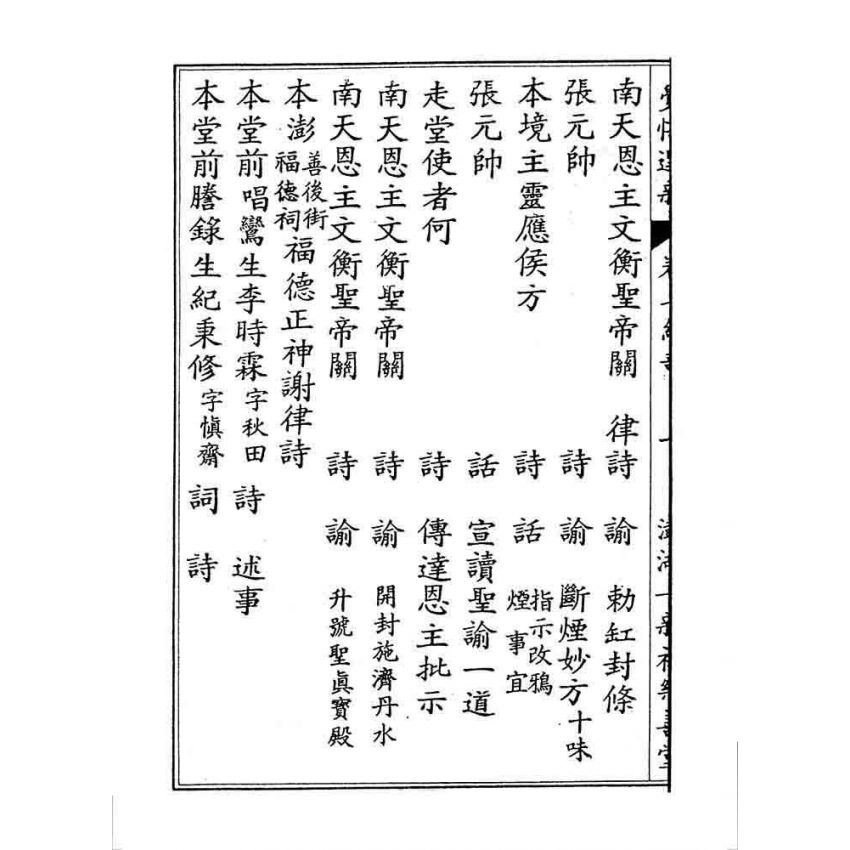 南天恩主文衡聖帝關 律詩 諭 勅缸封條
張元帥 詩 諭 斷煙妙方十味
本境主靈應侯方 詩 話 指示改鴉煙事宜
張元帥 話 宣讀聖諭一道
走堂使者何 詩 傳達恩主批示
南天恩主文衡聖帝關 詩 諭 開封施濟丹水
南天恩主文衡聖帝關 詩 諭 升號聖眞寶殿
本澎善後街福德祠福德正神謝律詩
本堂前唱鸞生李時霖字秋田 詩 述事
本堂前謄錄生紀秉修字愼齋 詞 詩